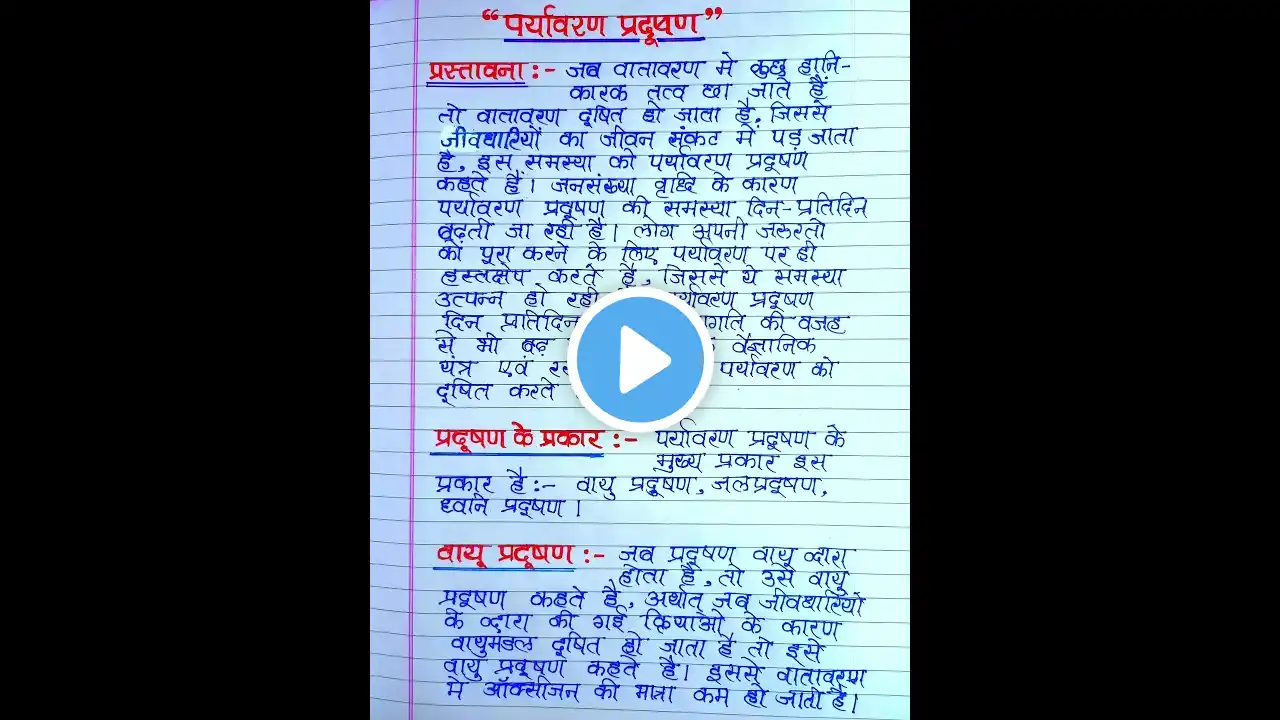 “पर्यावरण प्रदूषण”
प्रस्तावना :- जब वातावरण मे कुछ हानि-
कारक तत्व छा जाते हैं
तो वातावरण दूषित हो जाता है, जिससे
जीवधारियों का जीवन संकट में पड़ जाता
है, इस समस्या को पर्यावरण प्रदूषण
कहते हैं। जनसंख्या वृध्दि के कारण
पर्यावरण प्रदूषण की समस्या दिन-प्रतिदिन
बढ़ती जा रही है। लोग अपनी जरुरतो
को पूरा करने के लिए पर्यावरण पर ही
हस्तक्षेप करते है, जिससे ये समस्या
उत्पन्न हो रही पर्यावरण प्रदूषण
दिन प्रतिदिन की वजह
से भी बढ़ वैज्ञानिक
यंत्र एवं पर्यावरण को
दूषित करते
प्रदूषण के प्रकार :- पर्यावरण प्रदूषण के
मुख्य प्रकार इस
प्रकार है:- वायु प्रदूषण, जलप्रदूषण,
ध्वनि प्रदूषण।
वायु प्रदूषण :- जब प्रदूषण वायु व्दारा
होता है, तो उसे वायु
प्रदूषण कहते है, अर्थात् जब जीवधारियो
के व्दारा की गई क्रियाओ के कारण
वायुमंडल दूषित हो जाता है तो इसे
वायु प्रदूषण कहते है। इससे वातावरण
मे ऑक्सीजन की मात्रा कम हो जाती है।